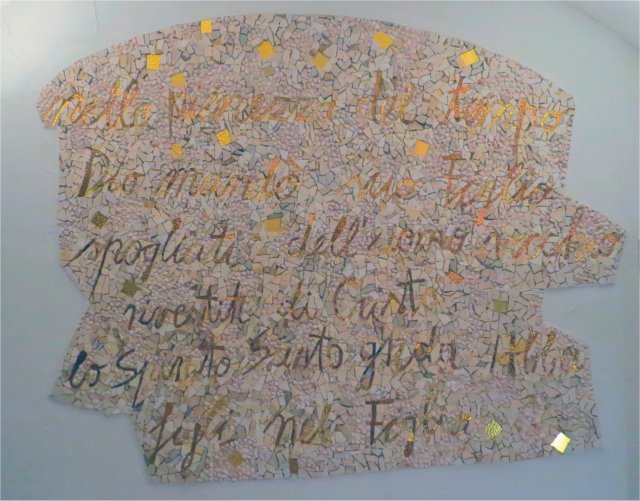 nella pienezza del tempo
Dio mandò suo Figlio
spogliati dell'uomo vecchio
rivestiti di Cristo
lo Spirito Santo grida Abbà
figli nel Figlio